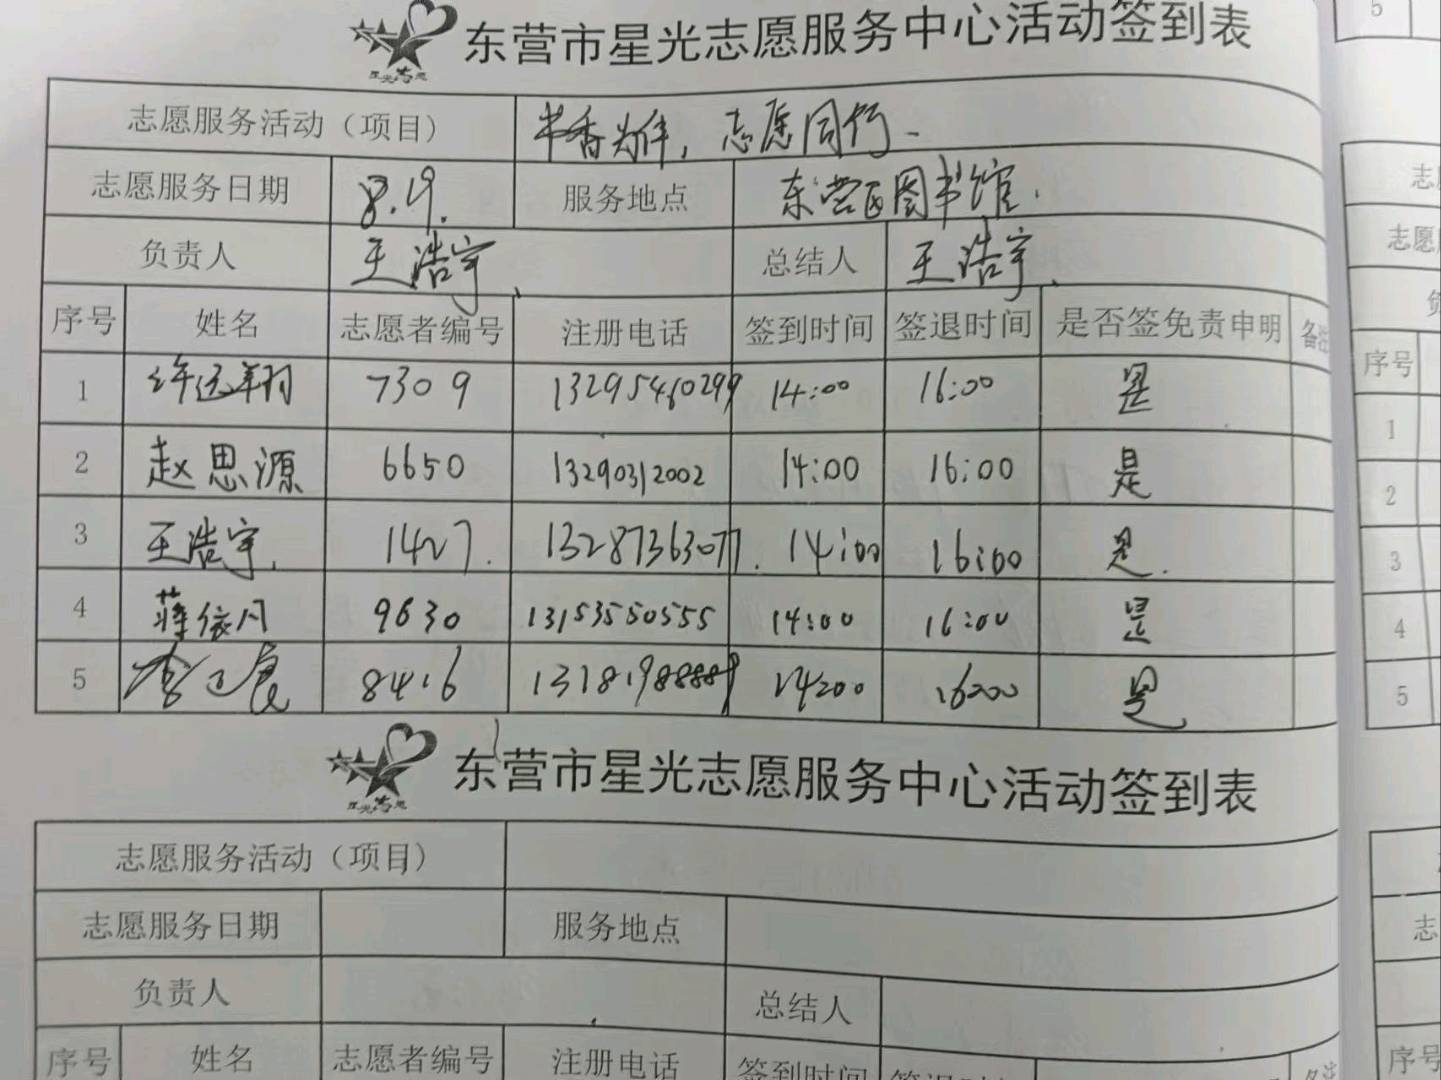 东营市星光志愿服务中心活动签到表
志愿服务活动（项目） 书香为伴，志愿同行.
志愿服务日期 8.9. 服务地点 东营区图书馆.
负责人 王浩宇、 总结人 王浩宇、
序号 姓名 志愿者编号 注册电话 签到时间 签退时间 是否签免责申明 备注
1 许运翔 7309 13295460299 14:00 16:00 是
2 赵思源 6650 13290312002 14:00 16:00 是
3 王浩宇. 1427. 13287363077. 14:00 16:00 是.
4 蒋依凡 9630 13153550555 14:00 16:00 是
5 李 8416 13181988889 14:00 16:00 是
东营市星光志愿服务中心活动签到表
志愿服务活动（项目）
志愿服务日期 服务地点
负责人 总结人
序号 姓名 志愿者编号 注册电话 签到时间 签退时间
5
志愿
序号
1
2
3
4
5
志
序号